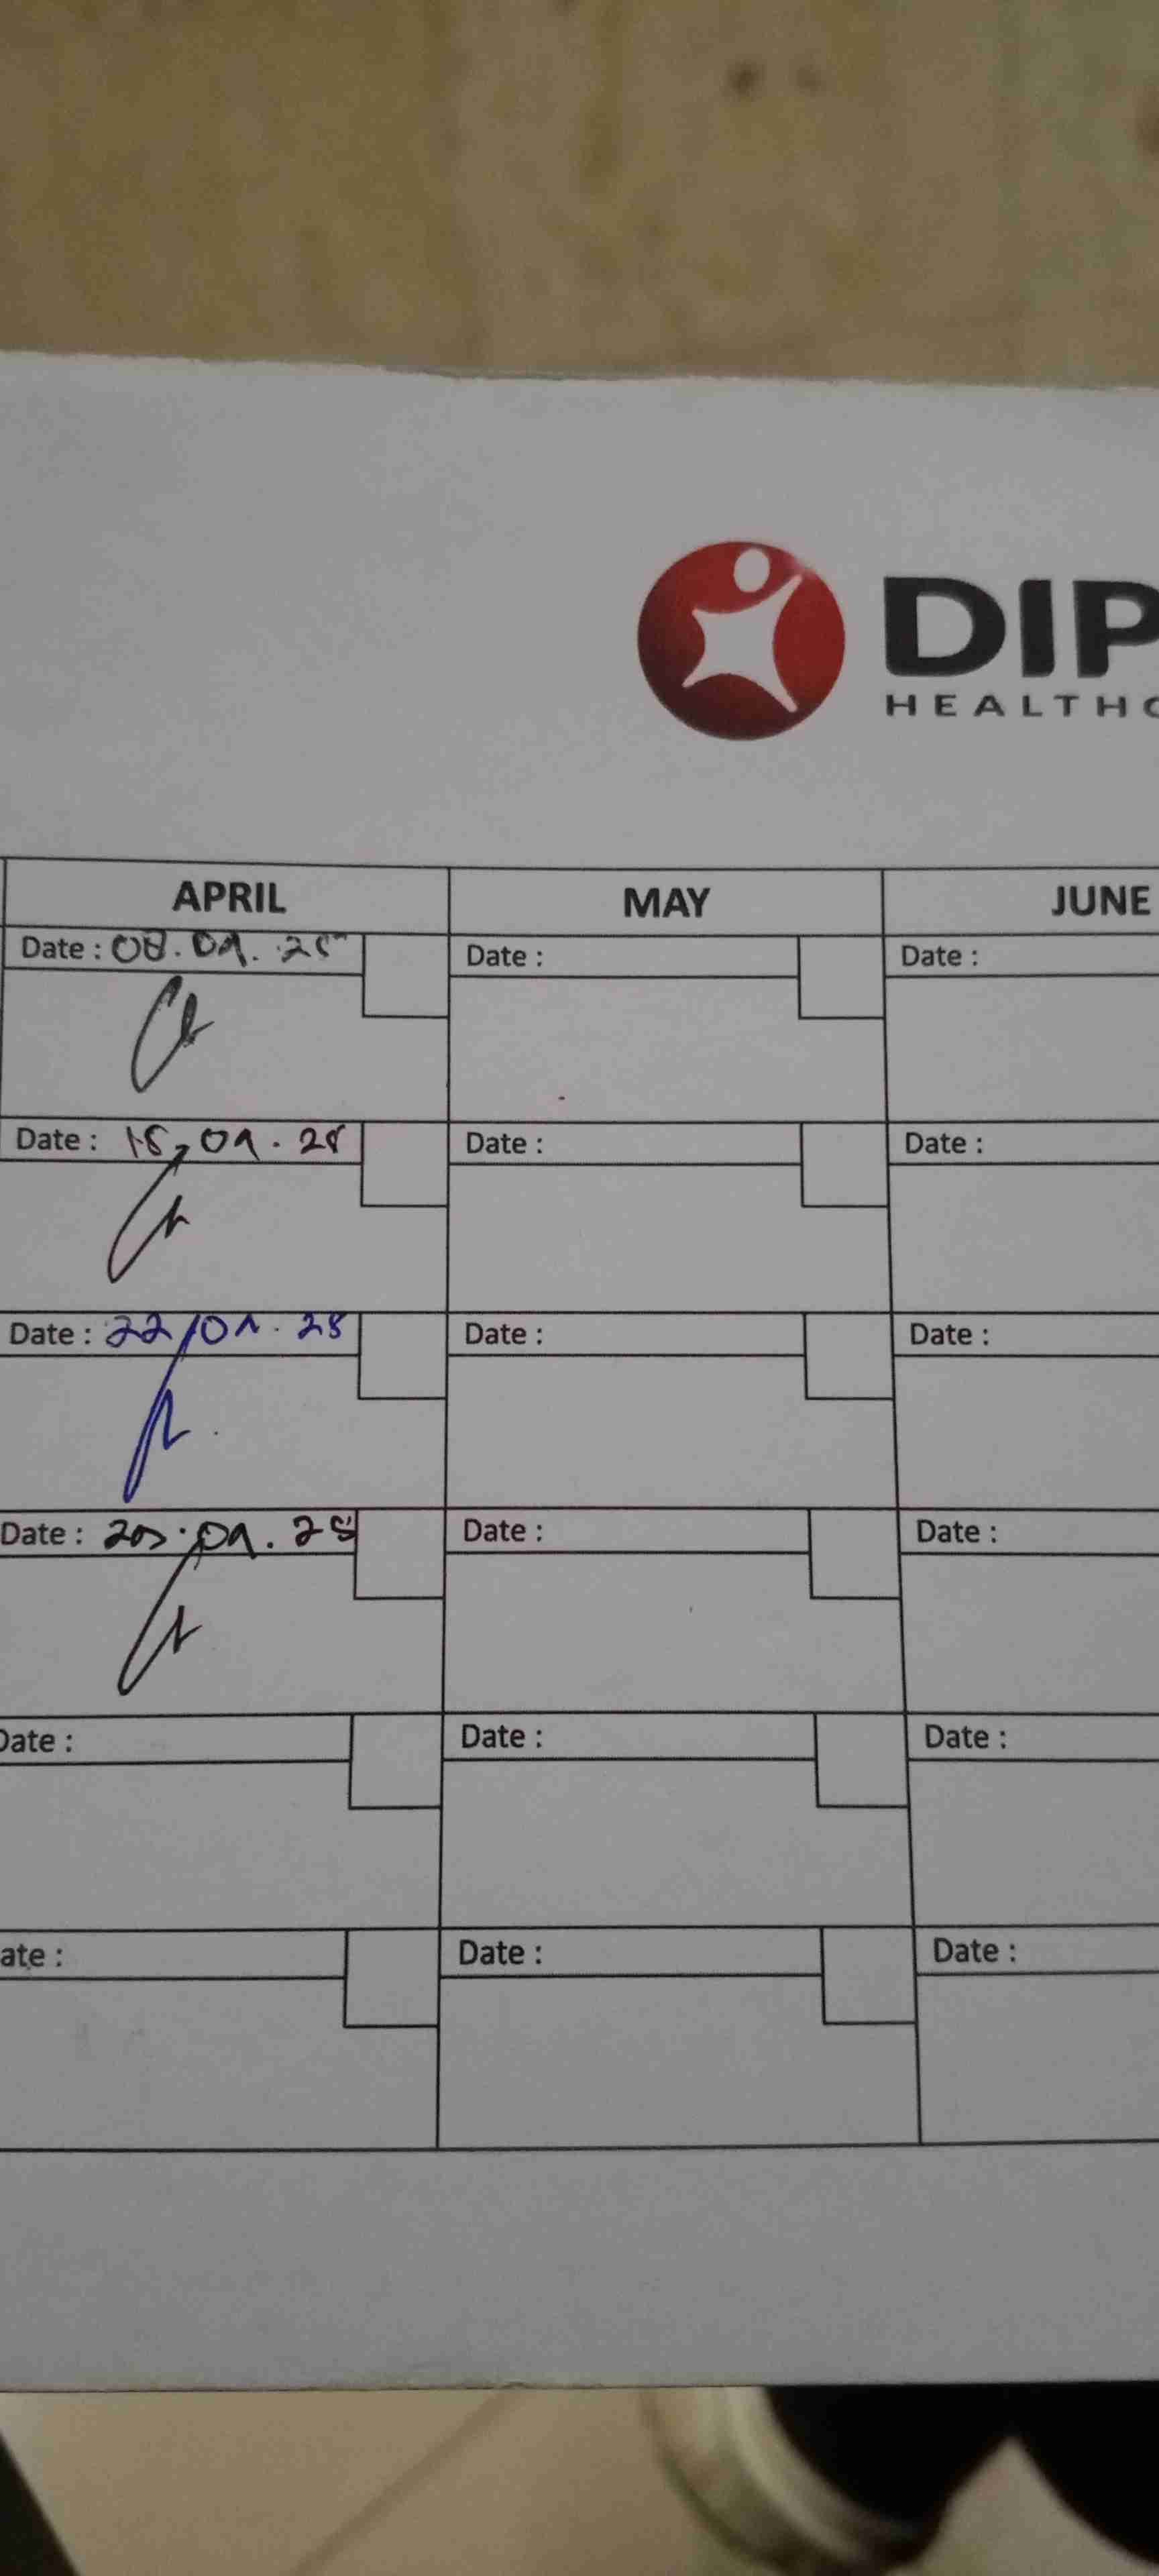 DIP
HEALTHC
APRIL MAY JUNE
Date : 08.04.25 Date : Date :
Date : 15.04.25 Date : Date :
Date : 22.04.25 Date : Date :
Date : .04.25 Date : Date :
Date : Date : Date :
ate : Date : Date :